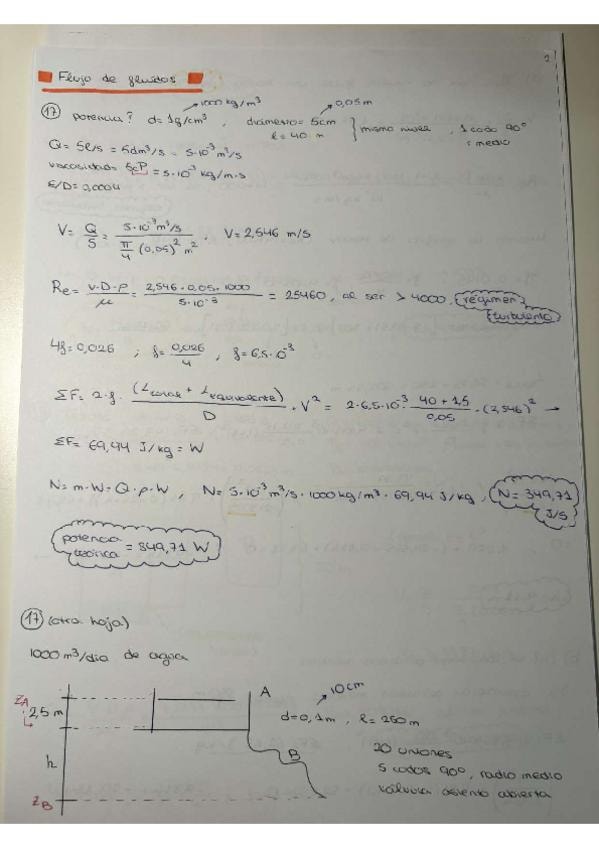 2
Flujo de fluidos
1000 kg/m³
0,05 m
17 potencia? d= 1g/cm³, diámetro= 5cm
l= 40 m } mismo nivel, 1 codo 90º medio
Q= 5l/s = 5dm³/s = 5·10⁻³ m³/s
viscosidad= 5cP = 5·10⁻³ kg/m·s
E/D= 0,0004
V= Q/S = 5·10⁻³ m³/s / π/4 (0,05)² m², V= 2,546 m/s
Re= v·D·ρ/μ = 2,546·0,05·1000/5·10⁻³ = 25460, al ser > 4000, régimen turbulento
4f= 0,026 ; f= 0,026/4 , f= 6,5·10⁻³
ΣF= 2·f· (Lcona + Lequivalente)/D · V² = 2·6,5·10⁻³· 40 + 1,5/0,05 ·(2,546)² →
ΣF= 69,94 J/kg = W
N= m·W= Q·ρ·W , N= 5·10⁻³ m³/s · 1000 kg/m³ · 69,94 J/kg, N= 349,71 J/s
potencia teórica = 349,71 W
17 (otra hoja)
1000 m³/día de agua
ZA
2,5 m
h
ZB
A
B
10 cm
d= 0,1m, l= 250 m
20 uniones
5 codos 90º, radio medio
válvula asiento abierta